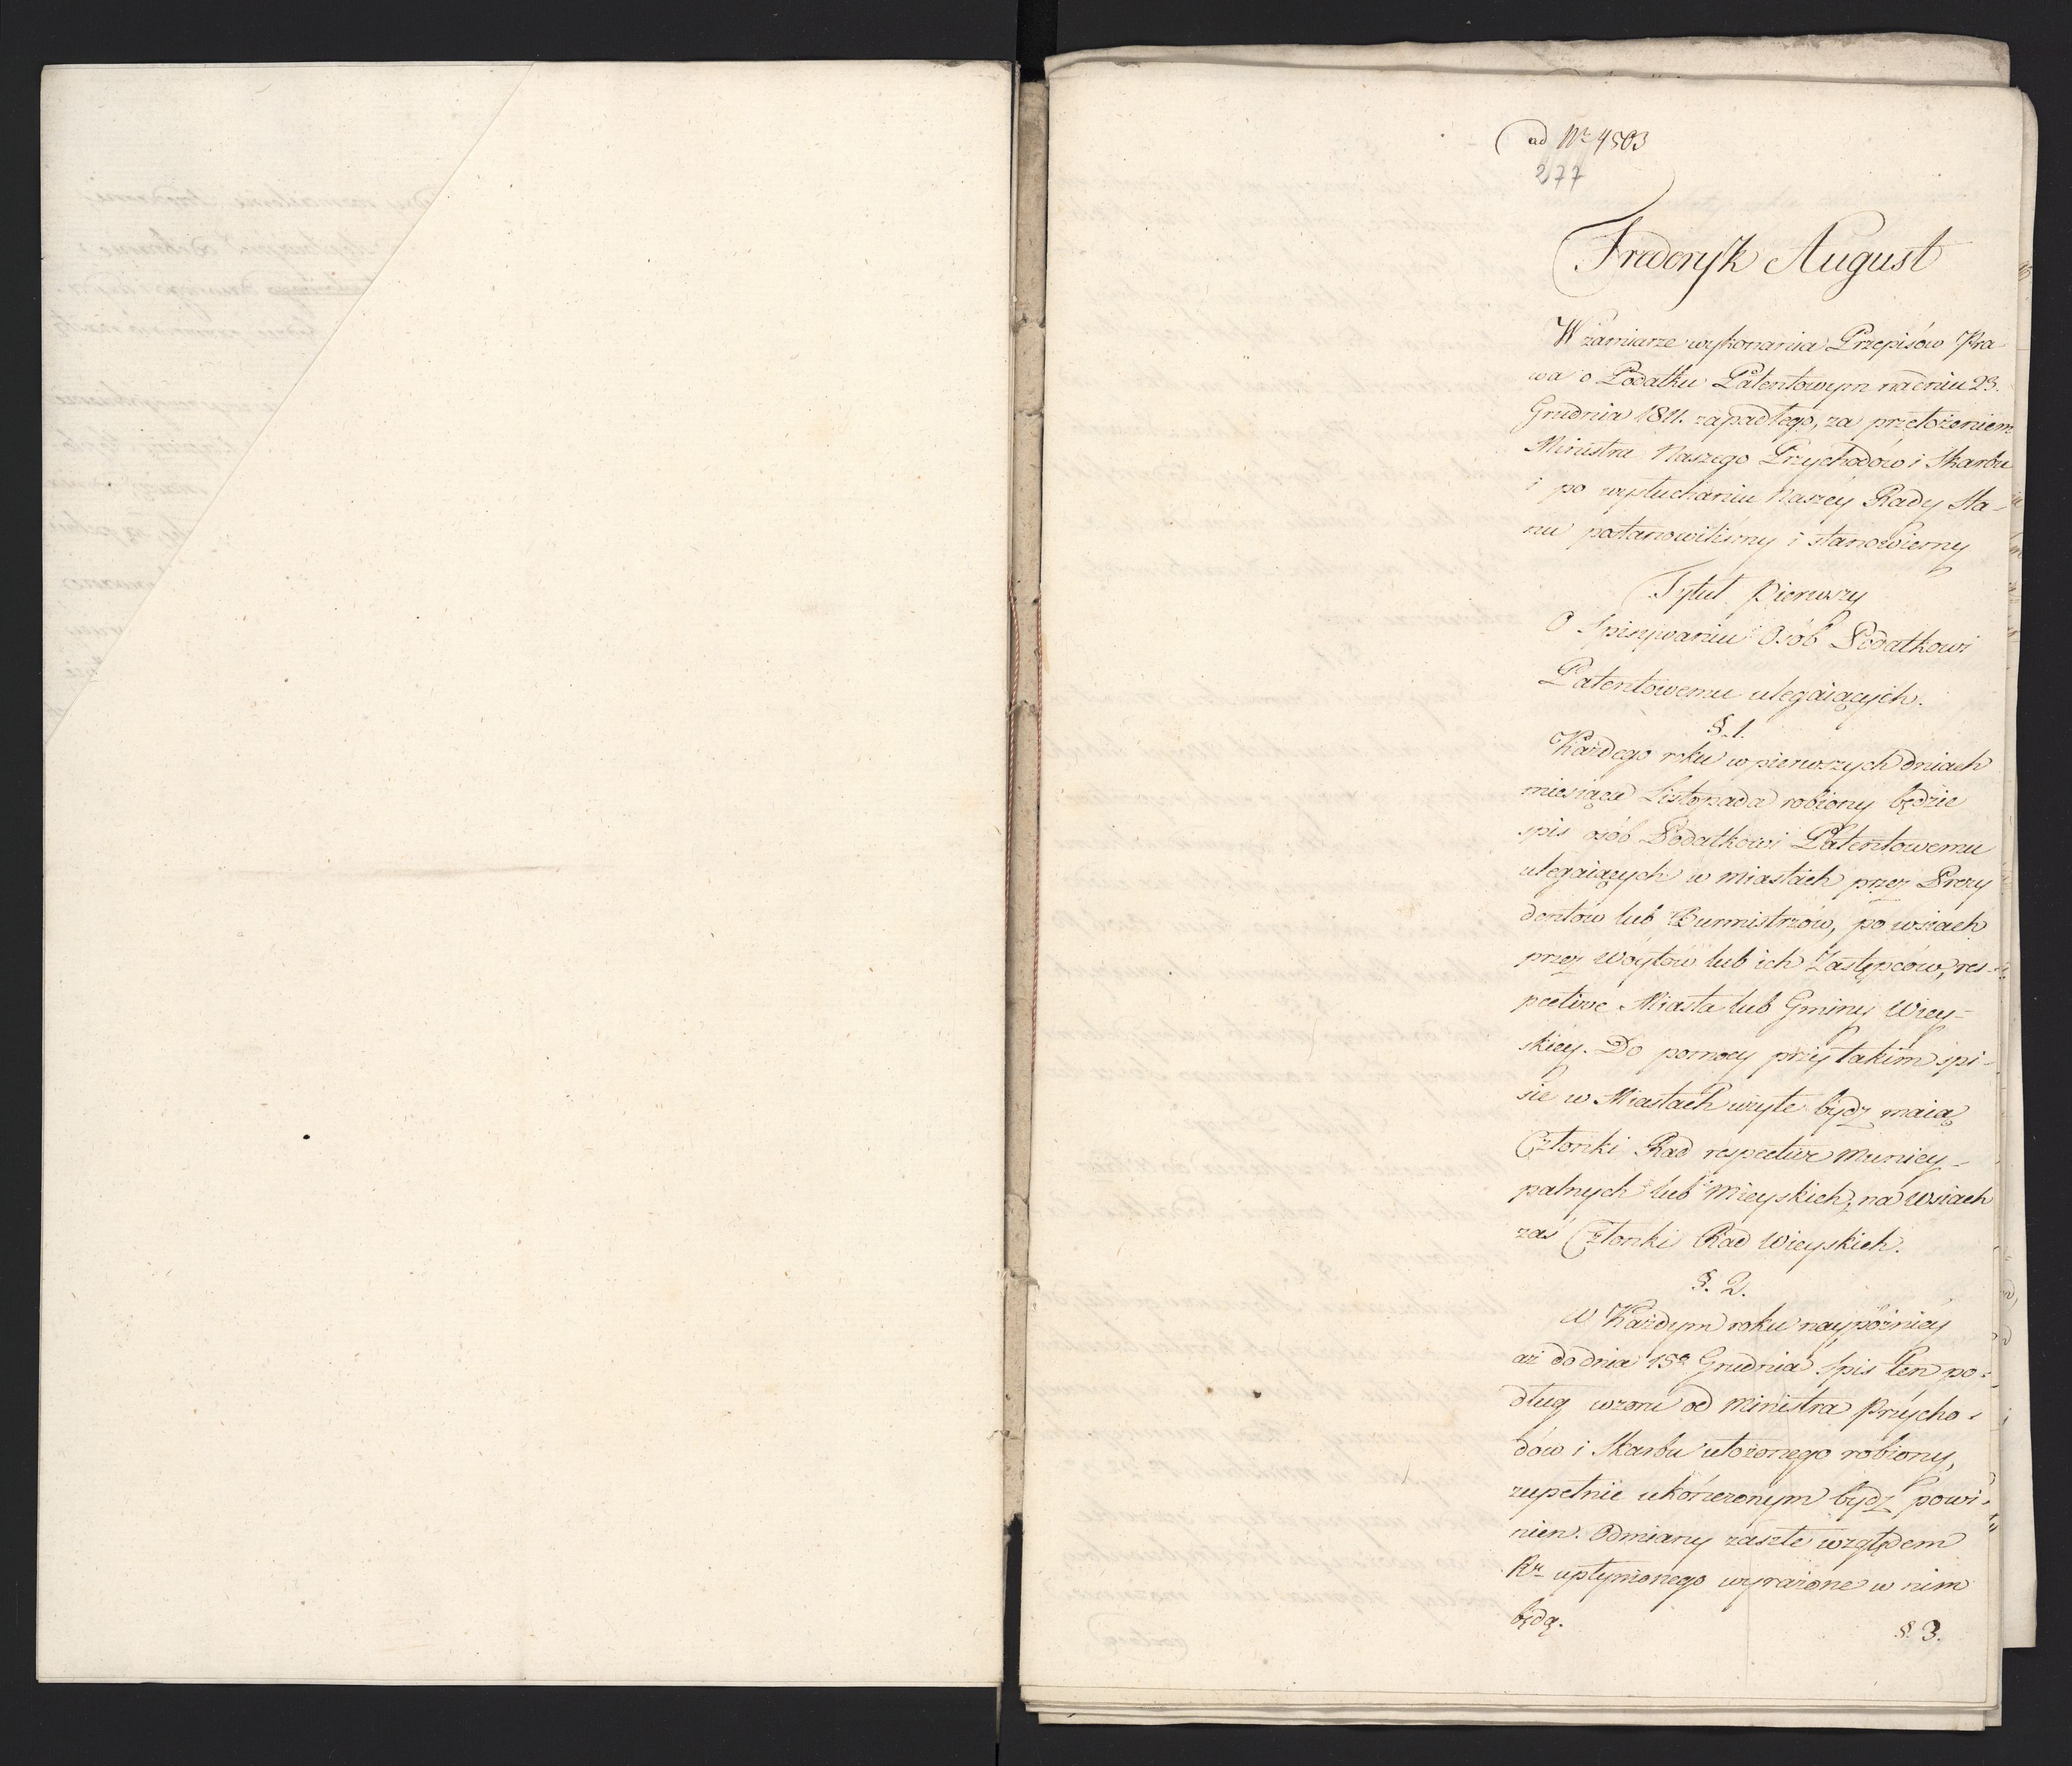 ad Nr 4503
277
Frederyk August
W zamiarze wykonania Przepisów Pra-
wa o Podatku Patentowym na dniu 23.
Grudnia 1811. zapadłego, za przełożeniem
Ministra Naszego Przychodów i Skarbu
i po wysłuchaniu Naszéy Rady Sta-
nu postanowiliśmy i stanowiemy
Tytuł Pierwszy
O Spisywaniu Osób Podatkowi
Patentowemu ulegaiących.
§. 1.
Każdego roku w pierwszych dniach
miesiąca Listopada robiony będzie
spis osób Podatkowi Patentowemu
ulegaiących w miastach przez Prezy
dentów lub Burmistrzów, po wsiach
przez Wóytów lub ich Zastępców, res-
pective Miasta lub Gminy Wiey-
skiey. Do pomocy przy takim spi-
sie w Miastach użyte bydz maią
Członki Rad respective Municy-
palnych lub Mieyskich, na wsiach
zaś Członki Rad Wieyskich.
§. 2.
W Każdym roku naypóźniéy
aż do dnia 15o Grudnia Spis ten po-
dług wzoru od Ministra Przycho-
dów i Skarbu ułożonego robiony,
zupełnie ukończonym bydz powi-
nien. Odmiany zaszłe względem
Ru upłynionego wyrażone w nim
będą.
§. 3.